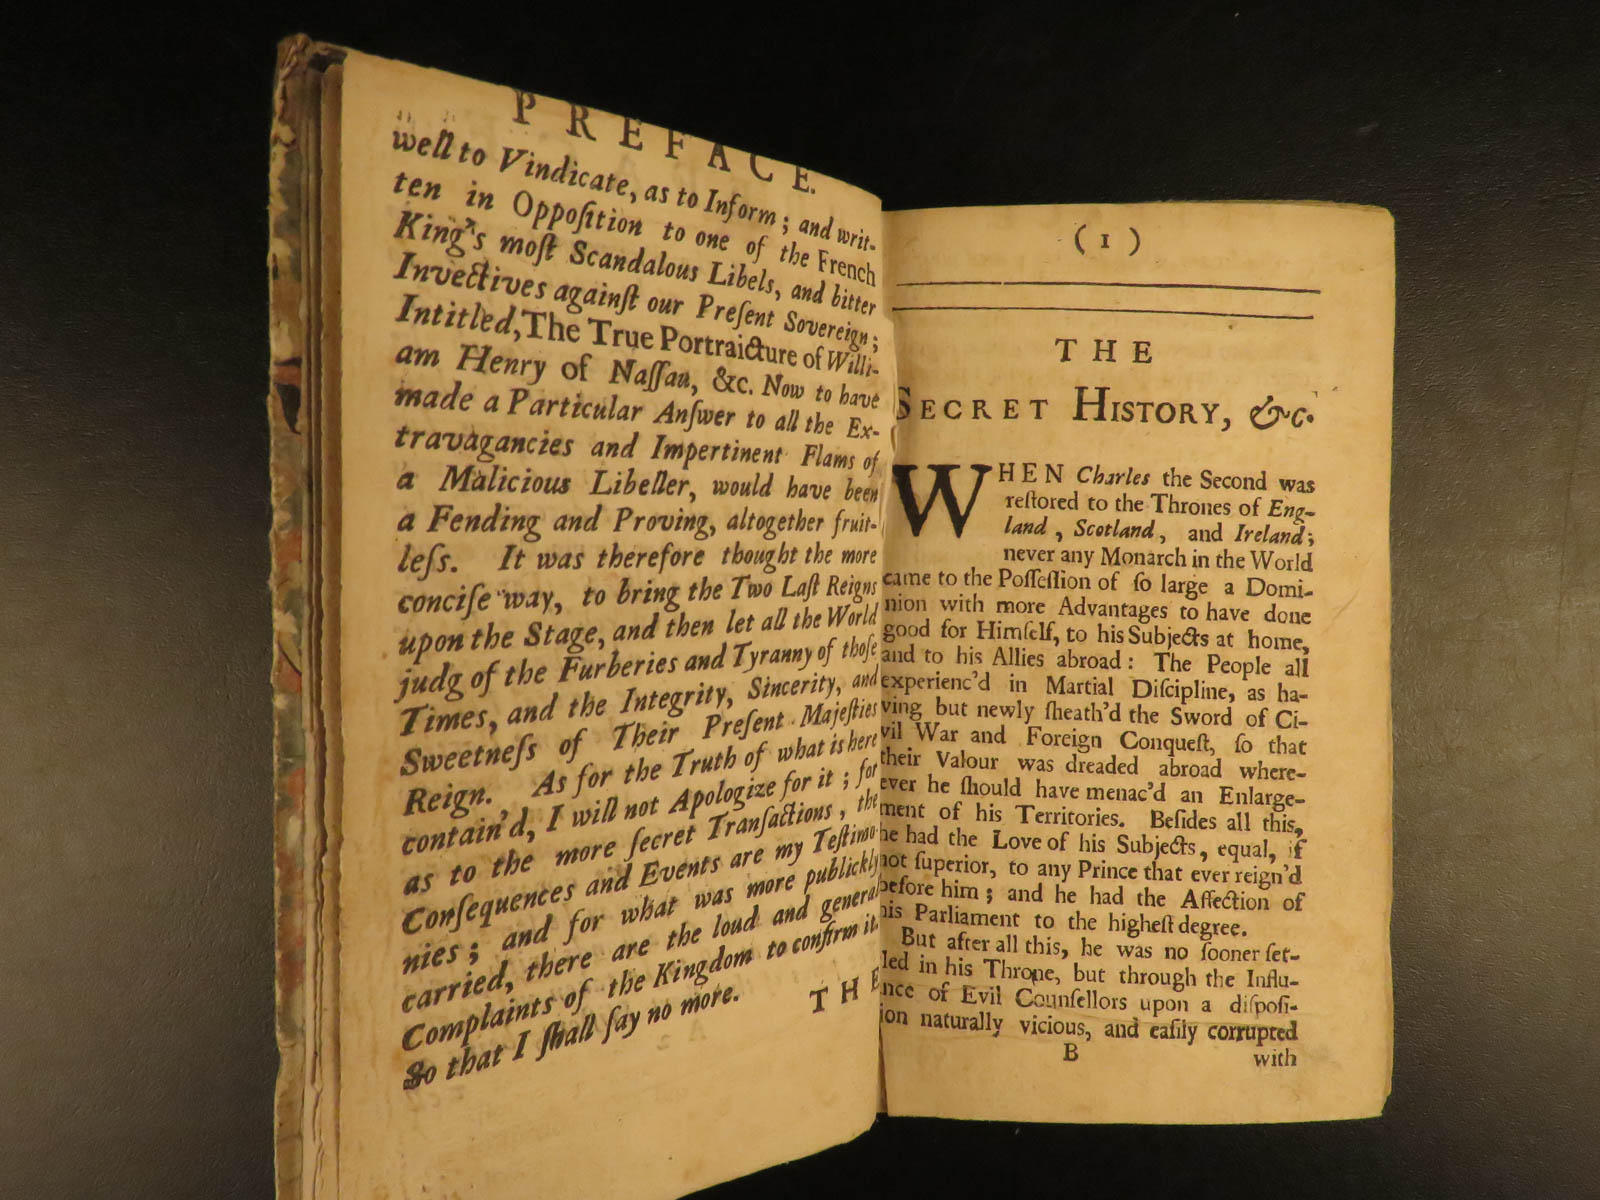 PREFACE.
well to Vindicate, as to Inform; and writ-
ten in Oppoſition to one of the French
King's moſt Scandalous Libels, and bitter
Invectives againſt our Preſent Sovereign;
Intitled, The True Portraicture of Willi-
am Henry of Naſſau, &c. Now to have
made a Particular Anſwer to all the Ex-
travagancies and Impertinent Flams of
a Malicious Libeller, would have been
a Fending and Proving, altogether fruit-
leſs. It was therefore thought the more
conciſe way, to bring the Two Laſt Reigns
upon the Stage, and then let all the World
judg of the Furberies and Tyranny of thoſe
Times, and the Integrity, Sincerity, and
Sweetneſs of Their Preſent Majeſties
Reign. As for the Truth of what is here
contain'd, I will not Apologize for it; for
as to the more ſecret Tranſactions, the
Conſequences and Events are my Teſtimo-
nies; and for what was more publickly
carried, there are the loud and general
Complaints of the Kingdom to confirm it.
So that I ſhall ſay no more.
THE
(1)
THE
SECRET HISTORY, &c.
WHEN Charles the Second was
reſtored to the Thrones of Eng-
land, Scotland, and Ireland;
never any Monarch in the World
came to the Poſſeſſion of ſo large a Domi-
nion with more Advantages to have done
good for Himſelf, to his Subjects at home,
and to his Allies abroad: The People all
experienc'd in Martial Diſcipline, as ha-
ving but newly ſheath'd the Sword of Ci-
vil War and Foreign Conqueſt, ſo that
their Valour was dreaded abroad where-
ever he ſhould have menac'd an Enlarge-
ment of his Territories. Beſides all this,
he had the Love of his Subjects, equal, if
not ſuperior, to any Prince that ever reign'd
before him; and he had the Affection of
his Parliament to the higheſt degree.
But after all this, he was no ſooner ſet-
led in his Throne, but through the Influ-
nce of Evil Counſellors upon a diſpoſi-
ion naturally vicious, and eaſily corrupted
B
with